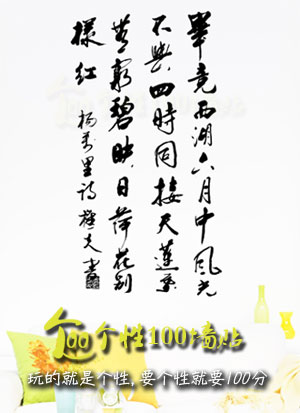 畢竟西湖六月中風光
不與四時同接天蓮葉
無窮碧映日荷花別
樣紅
楊萬里詩 夫書
100个性100墙贴
玩的就是个性,要个性就要100分